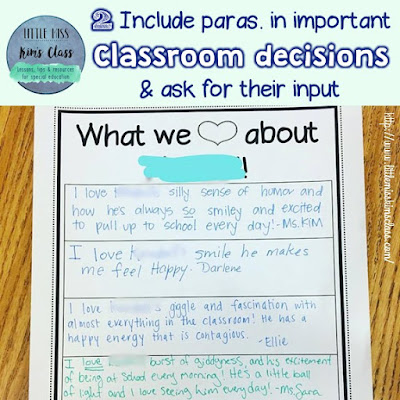 2 Include paras. in important
Classroom decisions
& ask for their input
LITTLE MISS
Kim's Class
Lessons, tips & resources
for special education
What we about
!
I love silly sense of humor and
how he's always so smiley and excited
to pull up to school every day! -Ms.KIM
I love smile he makes
me feel Happy. Darlene
I love giggle and fascination with
almost everything in the classroom! He has a
happy energy that is contagious.
-Ellie
I love burst of giddyness, and his excitement
of being at School every morning! HE's a little ball
of light and I love seeing him everyday! -Ms.Sara
http://www.littlemisskimsclass.com/